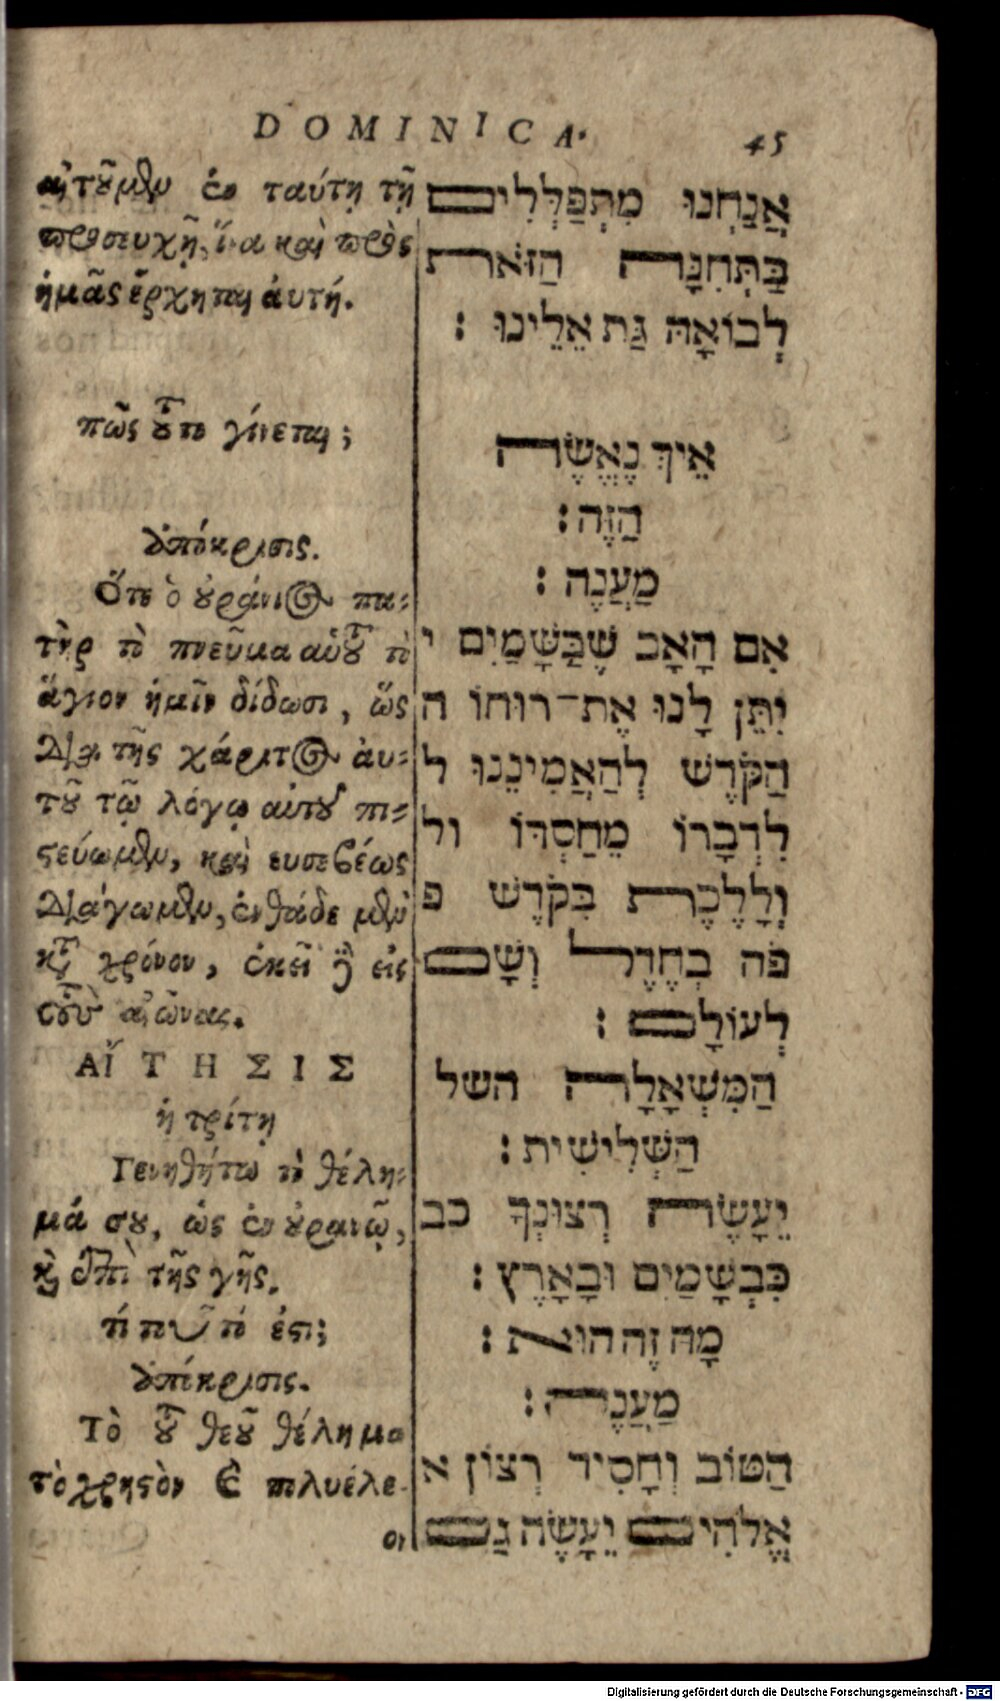 DOMINICA.
45
αἰτοῦμεν ἐν ταύτῃ τῇ
προσευχῇ, ἵνα καὶ πρὸς
ἡμᾶς ἔρχηται ἀυτή.
πῶς τοῦτο γίνεται;
ἀπόκρισις.
Ὅτε ὁ οὐράνιος πα-
τὴρ τὸ πνεῦμα αὐτοῦ τὸ
ἅγιον ἡμῖν δίδωσι, ὥς
διὰ τῆς χάριτος ἀυ-
τοῦ τῷ λόγῳ αὐτοῦ πι-
στεύωμεν, καὶ ευσεβέως
διάγωμεν, ἐνθάδε μὲν
κτ χρόνον, ἐκεῖ δὲ εἰς
τοὺς αἰῶνας.
ΑἼΤΗΣΙΣ
ἡ τρίτη
Γενηθήτω τὸ θέλη-
μά σου, ὡς ἐν οὐρανῷ,
καὶ ἐπὶ τῆς γῆς.
τί τοῦτό ἐστι;
ἀπόκρισις.
Τὸ τοῦ θεοῦ θέλημα
τὸ χρηστὸν καὶ πολυέλε-
ον
אֲנַחְנוּ מִתְפַּלְּלִים
בַּתְּחִנָּה הַזֹּאת
לְבוֹאָהּ גַּת אֵלֵינוּ :
אֵיךְ נֶאֱשֶׂה
הַזֶּה :
מַעֲנֶה :
אִם הָאָב שֶׁבַּשָּׁמַיִם י
יִתֵּן לָנוּ אֶת־רוּחוֹ ה
הַקֹּדֶשׁ לְהַאֲמִינֵנוּ ל
לִדְבָרוֹ מֵחַסְדּוֹ ול
וְלָלֶכֶת בְּקֹדֶשׁ פ
פֹּה בְחֶדֶל וְשָׁם
לְעוֹלָם :
הַמִּשְׁאָלָה השל
הַשְּׁלִישִׁית :
יֵעָשֶׂה רְצוֹנְךָ כב
כְּבְשָׁמַיִם וּבָאָרֶץ :
מָה זֶה הוּא :
מַעֲנֶה :
הַטּוֹב וְחָסִיד רְצוֹן א
אֱלֹהִים יֵעָשֶׂה גַּם
Digitalisierung gefördert durch die Deutsche Forschungsgemeinschaft - DFG